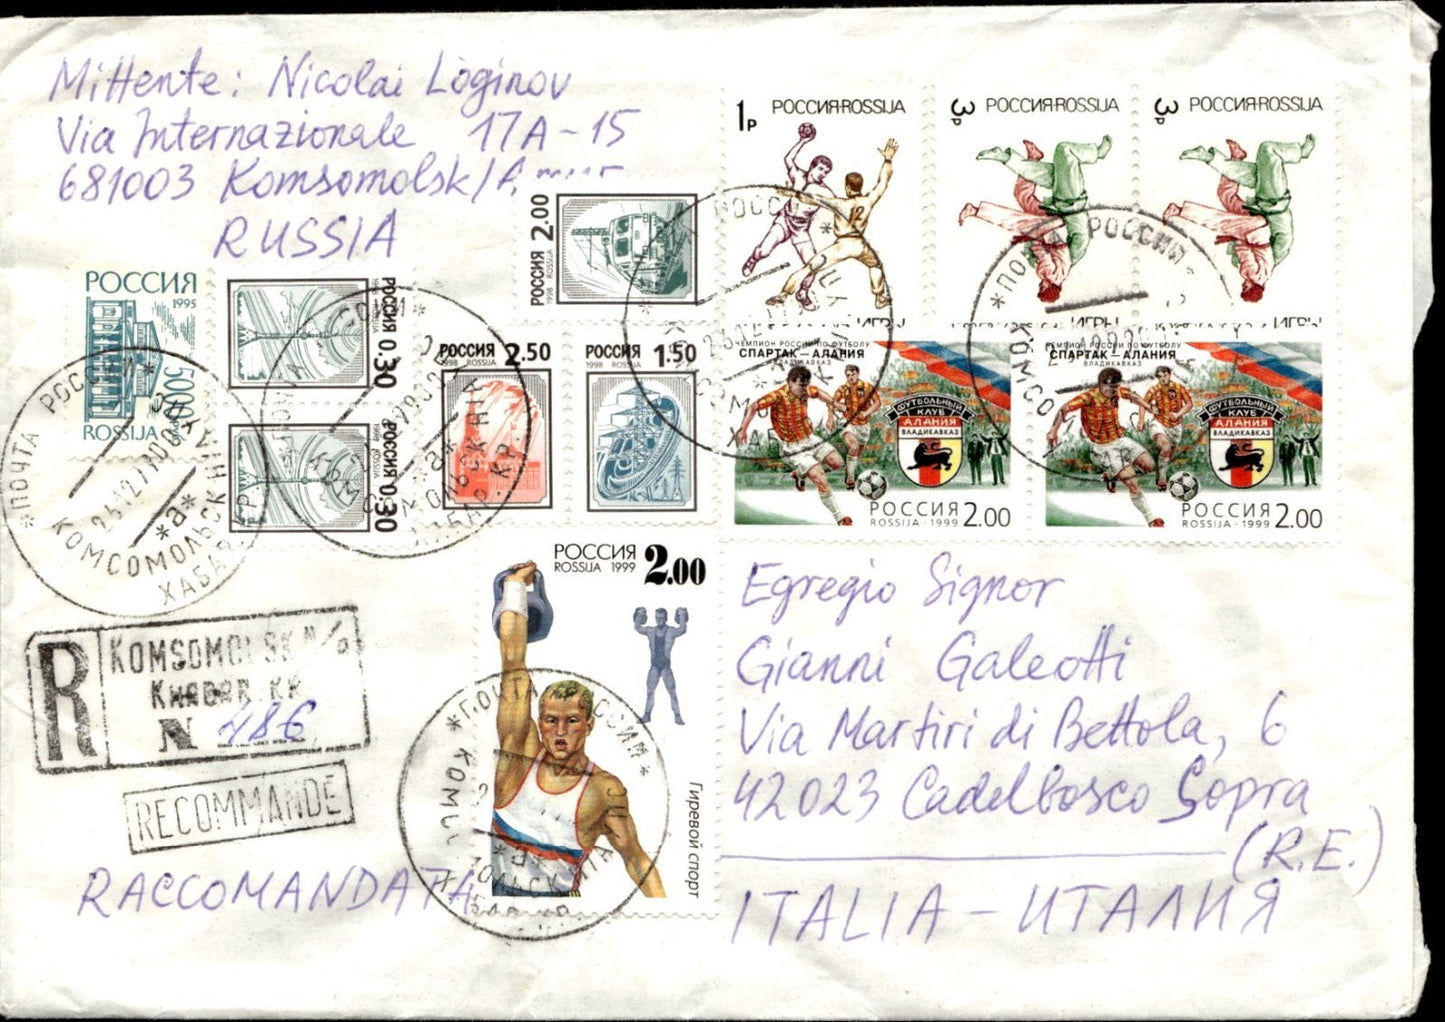 Mittente: Nicolai Lòginov
Via Internazionale 17A-15
681003 Komsomolsk/Amur
RUSSIA
1р РОССИЯ·ROSSIJA
12
3р РОССИЯ·ROSSIJA
3р РОССИЯ·ROSSIJA
ИГРЫ
РОССИЯ 2.00
1998 ROSSIJA
РОССИЯ
1995
5000
ROSSIJA
РОССИЯ 0.30
1998 ROSSIJA
РОССИЯ 0.30
1998 ROSSIJA
РОССИЯ 2.50
1998 ROSSIJA
РОССИЯ 1.50
1998 ROSSIJA
ЧЕМПИОН РОССИИ ПО ФУТБОЛУ
СПАРТАК – АЛАНИЯ
ВЛАДИКАВКАЗ
ФУТБОЛЬНЫЙ
КЛУБ
АЛАНИЯ
ВЛАДИКАВКАЗ
РОССИЯ
ROSSIJA · 1999 2.00
ЧЕМПИОН РОССИИ ПО ФУТБОЛУ
СПАРТАК – АЛАНИЯ
ВЛАДИКАВКАЗ
ФУТБОЛЬНЫЙ
КЛУБ
АЛАНИЯ
ВЛАДИКАВКАЗ
РОССИЯ
ROSSIJA · 1999 2.00
*ПОЧТА РОССИИ*
КОМСОМОЛЬСК НА
*а*
ХАБАР. КР.
РОССИЯ
ROSSIJA 1999 2.00
Гиревой спорт
R
KOMSOMOLSK n/a
KHABAR KR
N 486
RECOMMANDE
RACCOMANDATA
Egregio Signor
Gianni Galeotti
Via Martiri di Bettola, 6
42023 Cadelbosco Sopra
(R.E.)
ITALIA – ИТАЛИЯ